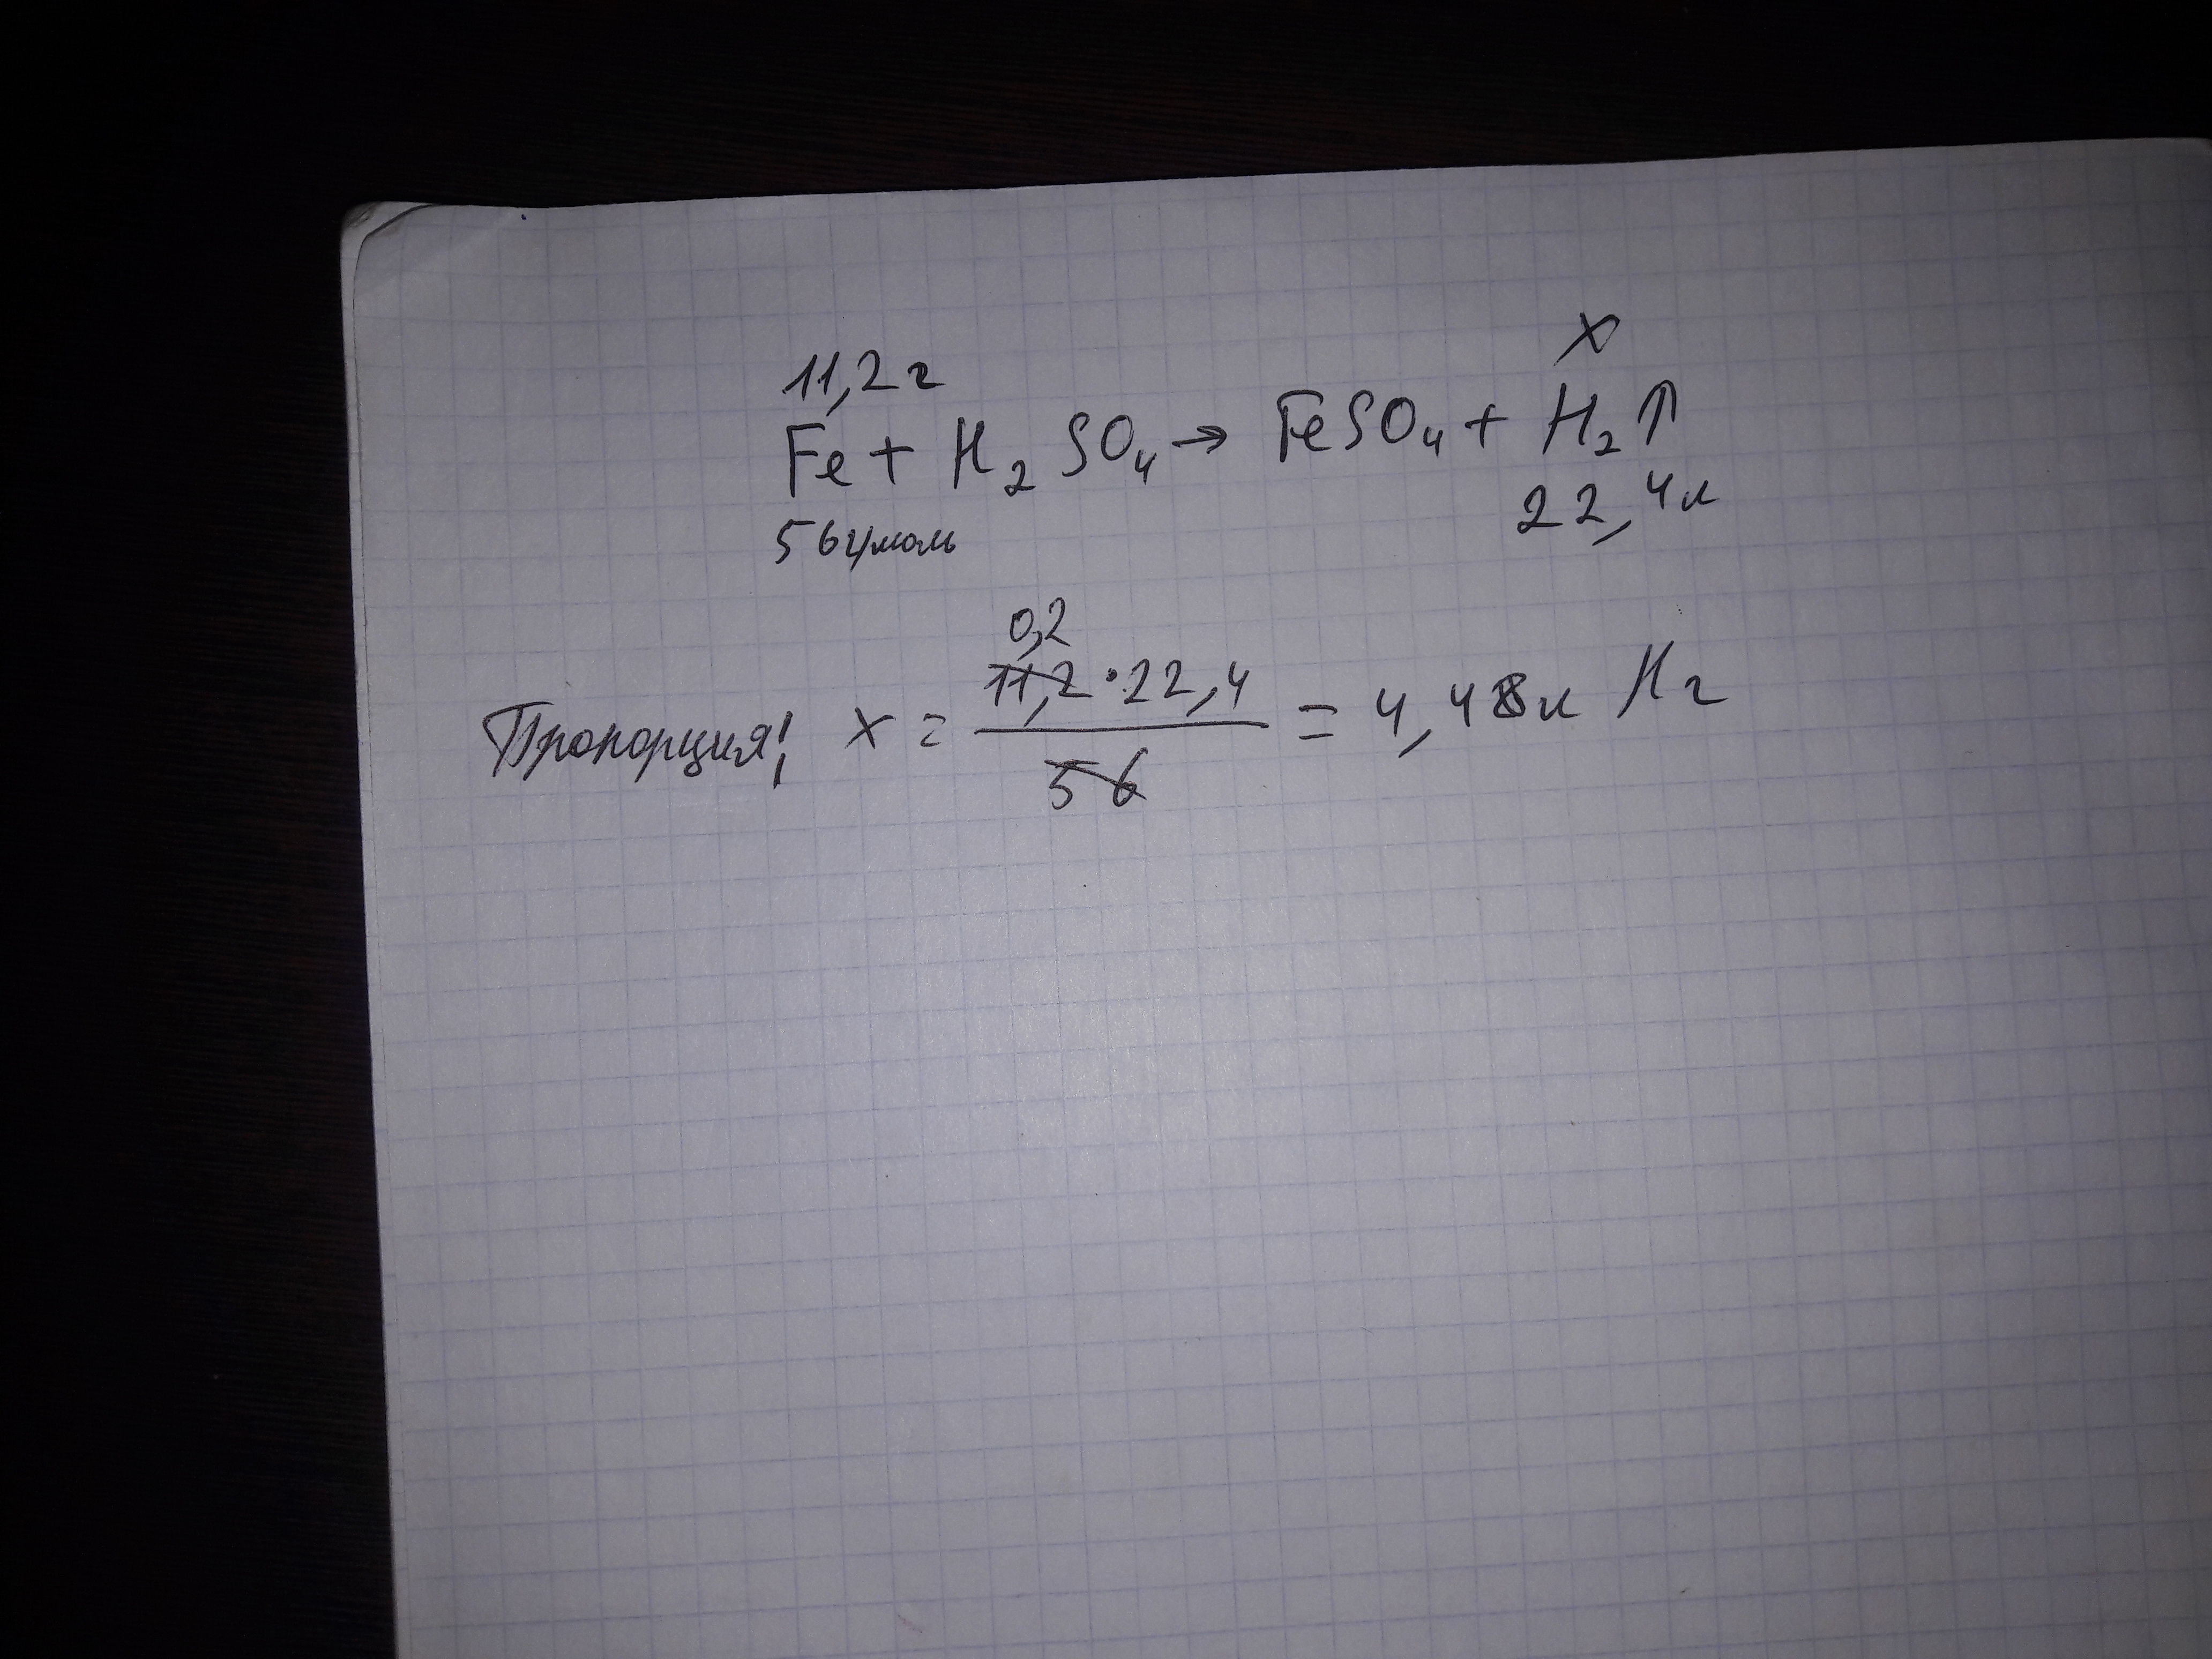 11,2 г
x
Fe + H₂SO₄ → FeSO₄ + H₂↑
56 г/моль
22,4 л
0,2
Пропорция! x = 11,2 · 22,4 / 56 = 4,48 л H₂